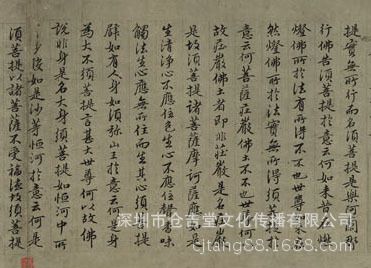 提實無所行而名須菩提是樂阿蘭那
行佛告須菩提於意云何如来昔在
燈佛所於法有所得不不也世尊
然燈佛所於法實無所得須菩提
意云何菩薩莊嚴佛土不不也世尊何以
故莊嚴佛土者即非莊嚴是名莊嚴
是故須菩提諸菩薩摩訶薩應如是
生清淨心不應住色生心不應住聲香味
觸法生心應無所住而生其心須菩提
譬如有人身如須弥山王於意云何是身
為大不須菩提言甚大世尊何以故佛
說非身是名大身須菩提如恒河中所
如是沙等恒河於意云何是
須菩提以諸菩薩不受福德故須菩提
深圳市仓吉堂文化传播有限公司
cjtang88.1688.com